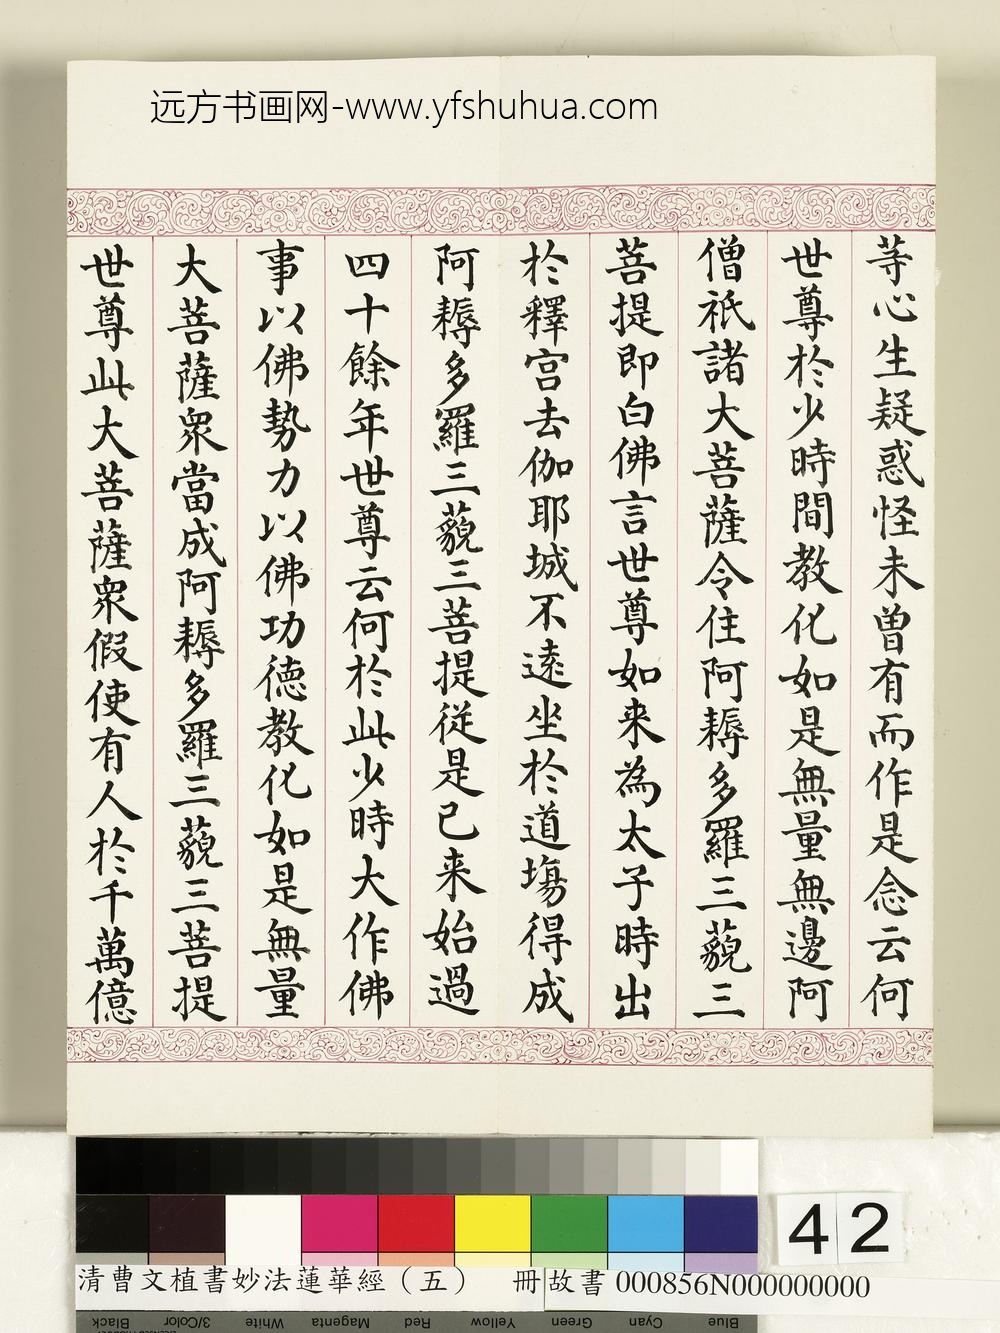 远方书画网-www.yfshuhua.com
等心生疑惑怪未曾有而作是念云何
世尊於少時間教化如是無量無邊阿
僧祇諸大菩薩令住阿耨多羅三藐三
菩提即白佛言世尊如来為太子時出
於釋宮去伽耶城不遠坐於道場得成
阿耨多羅三藐三菩提從是已来始過
四十餘年世尊云何於此少時大作佛
事以佛勢力以佛功德教化如是無量
大菩薩眾當成阿耨多羅三藐三菩提
世尊此大菩薩眾假使有人於千萬億
42
清曹文植書妙法蓮華經（五） 冊 故書 000856N000000000
Black 3/Color White Magenta Red Yellow Green Cyan Blue